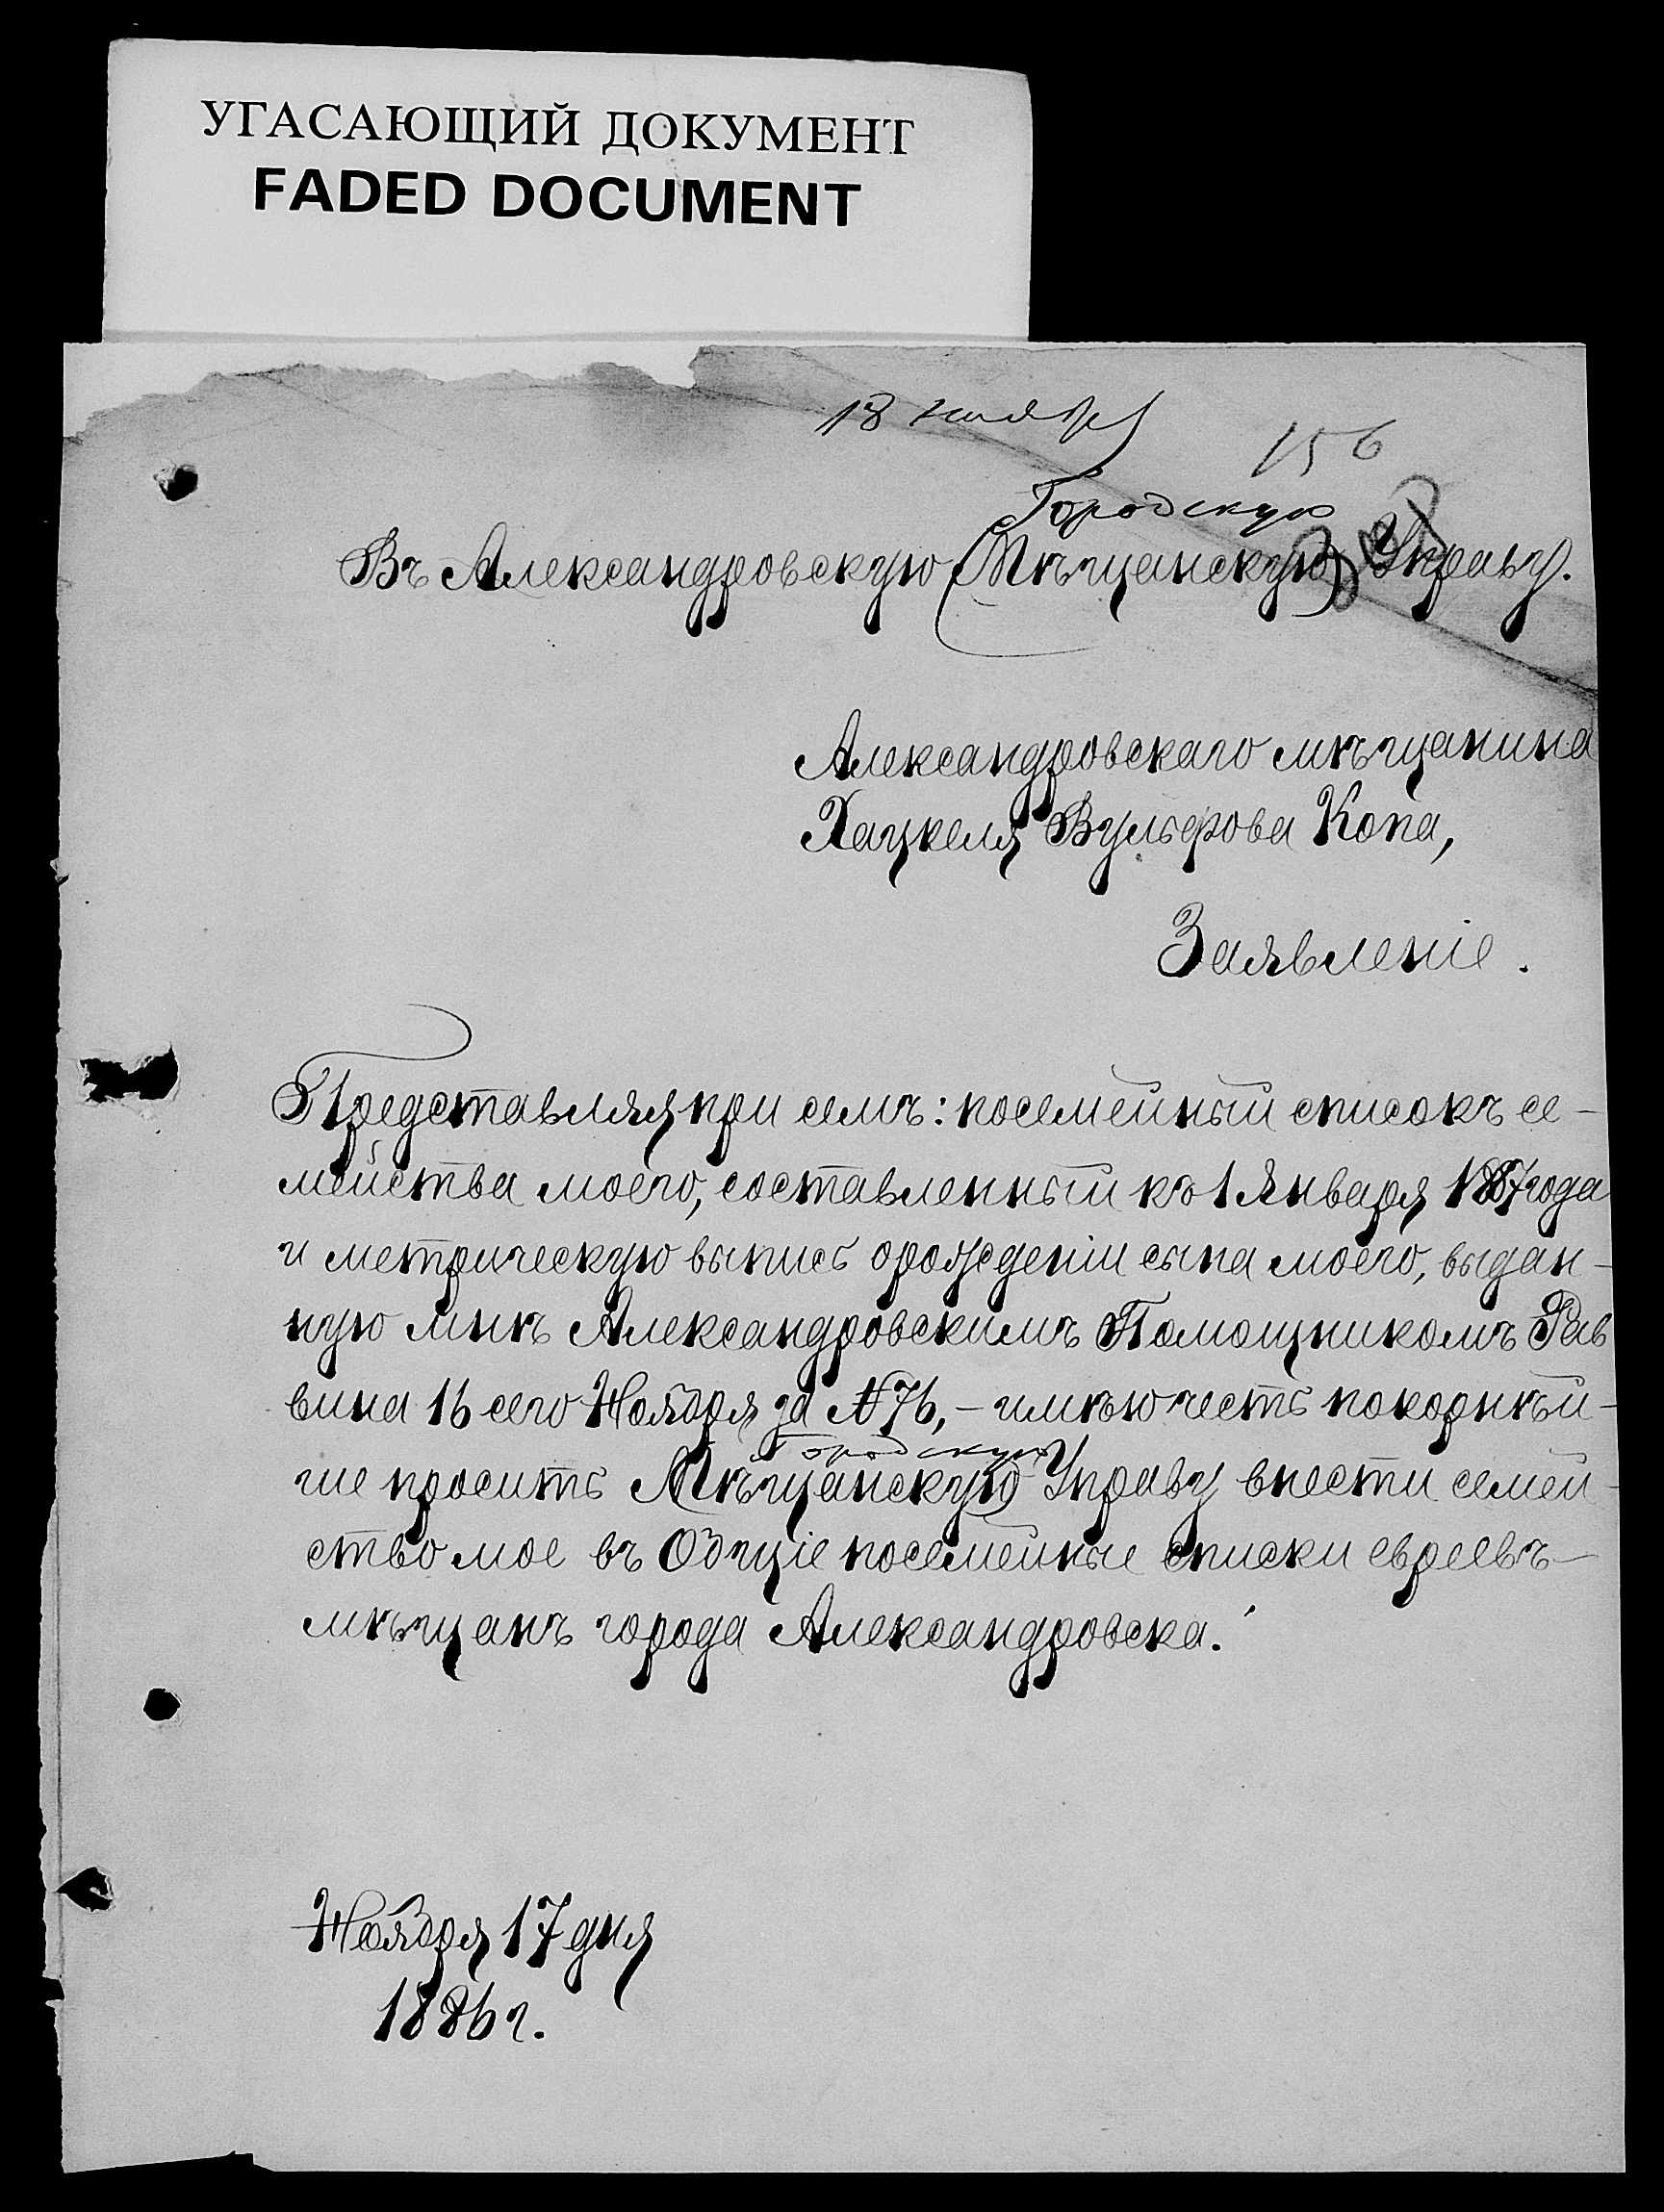 УГАСАЮЩИЙ ДОКУМЕНТ
FADED DOCUMENT
18 ноября
156
Городскую
Въ Александровскую (Мѣщанскую) Управу.
Александровскаго мѣщанина
Хацкеля Вульфова Копа,
Заявленіе.
Представляя при семъ: посемейный списокъ се-
мейства моего, составленный къ 1 Января 1887 года
и метрическую выпись о рожденіи сына моего, выдан-
ную мнѣ Александровскимъ Помощникомъ Рав
вина 16 сего Ноября за № 76, - имѣю честь покорнѣй-
Городскую
ше просить (Мѣщанскую) Управу внести семей-
ство мое въ Общіе посемейные списки евреевъ-
мѣщанъ города Александровска.
Ноября 17 дня
1886 г.